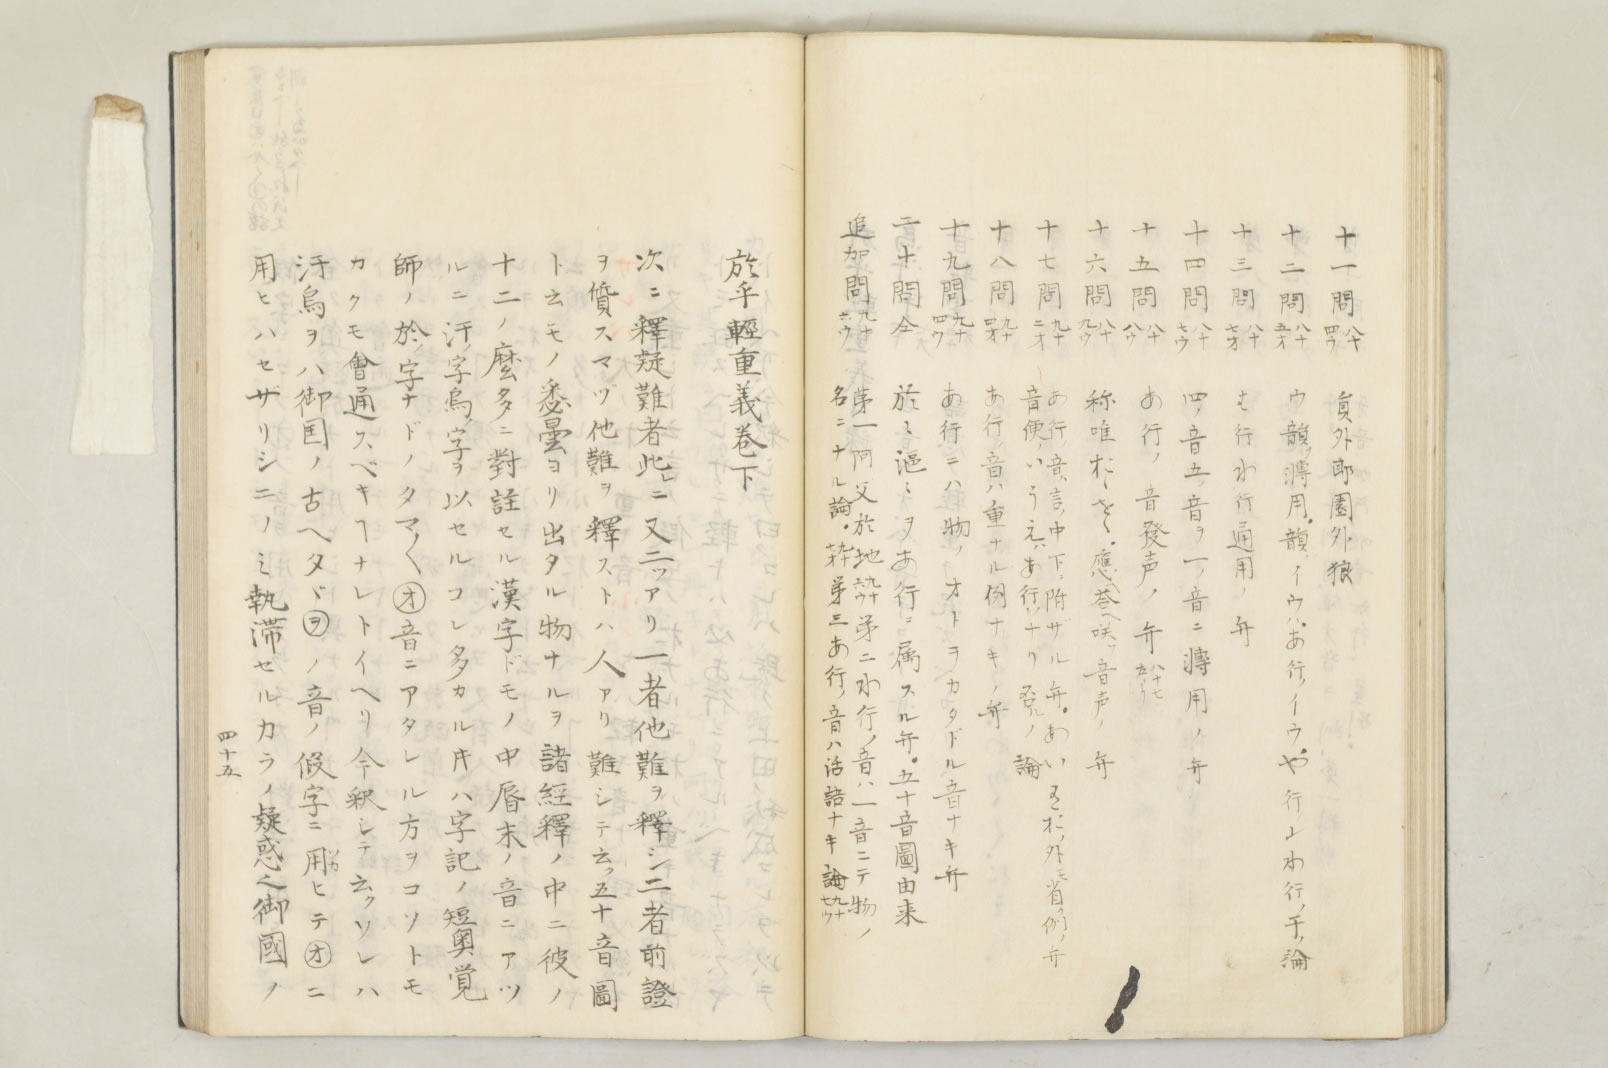 十一問 八十四ウ 員外郎圏外狼
十二問 八十五オ ウノ韻ノ轉用。韻ノイウハあ行ノイウや行よわ行ノ于ノ論
十三問 八十七オ も行わ行通用ノ弁
十四問 八十七ウ 四ノ音五ノ音ヲ一ノ音ニ轉用ノ弁
十五問 八十八ウ あ行ノ音發声ノ弁
十六問 八十九ウ 称唯おゝをゝ。應ヘ答ヘ咲フ音声ノ弁
十七問 九十二オ あ行ノ音言ノ中下ニ附ザル弁。あいうえおノ外ニ省ク例ノ弁
音便ノいうえハあ行ナリ 否ノ論
十八問 九十四オ あ行ノ音ハ重ナル例ナキノ弁
十九問 九十四ウ あ行ニハ物ノオトヲカタドル音ナキ弁
二十問 仝 於ミ謳ミヲあ行ニ属スル弁。五十音圖由来
追加問 九十六ウ 第一阿父於地 第二わ行ノ音ハ一音ニテ物ノ
名ニナル論。 第三あ行ノ音ハ活語ナキ論 九十七ウ
於乎輕重義巻下
次ニ釋疑難者此レニ又二ツアリ一者他難ヲ釋シ二者前證
ヲ質スマヅ他難ヲ釋ストハ人アリ難シテ云ク五十音圖
ト云モノ悉曇ヨリ出タル物ナルヲ諸經釋ノ中ニ彼ノ
十二ノ麼多ニ對註セル漢字ドモノ中脣末ノ音ニアツ
ルニ汙ノ字烏ノ字ヲ以セルコレ多カル㪽ハ字記ノ短奥覚
師ノ於ノ字ナドノタマ〱オ音ニアタレル方ヲコソトモ
カクモ會通スベキヿナレトイヘリ今釈シテ云クソレハ
汙烏ヲハ御国ノ古ヘタドヲノ音ノ假字ニ用ヒテオニ
用ヒハセザリシニノミ執滞セルカラノ疑惑也御國ノ
四十五